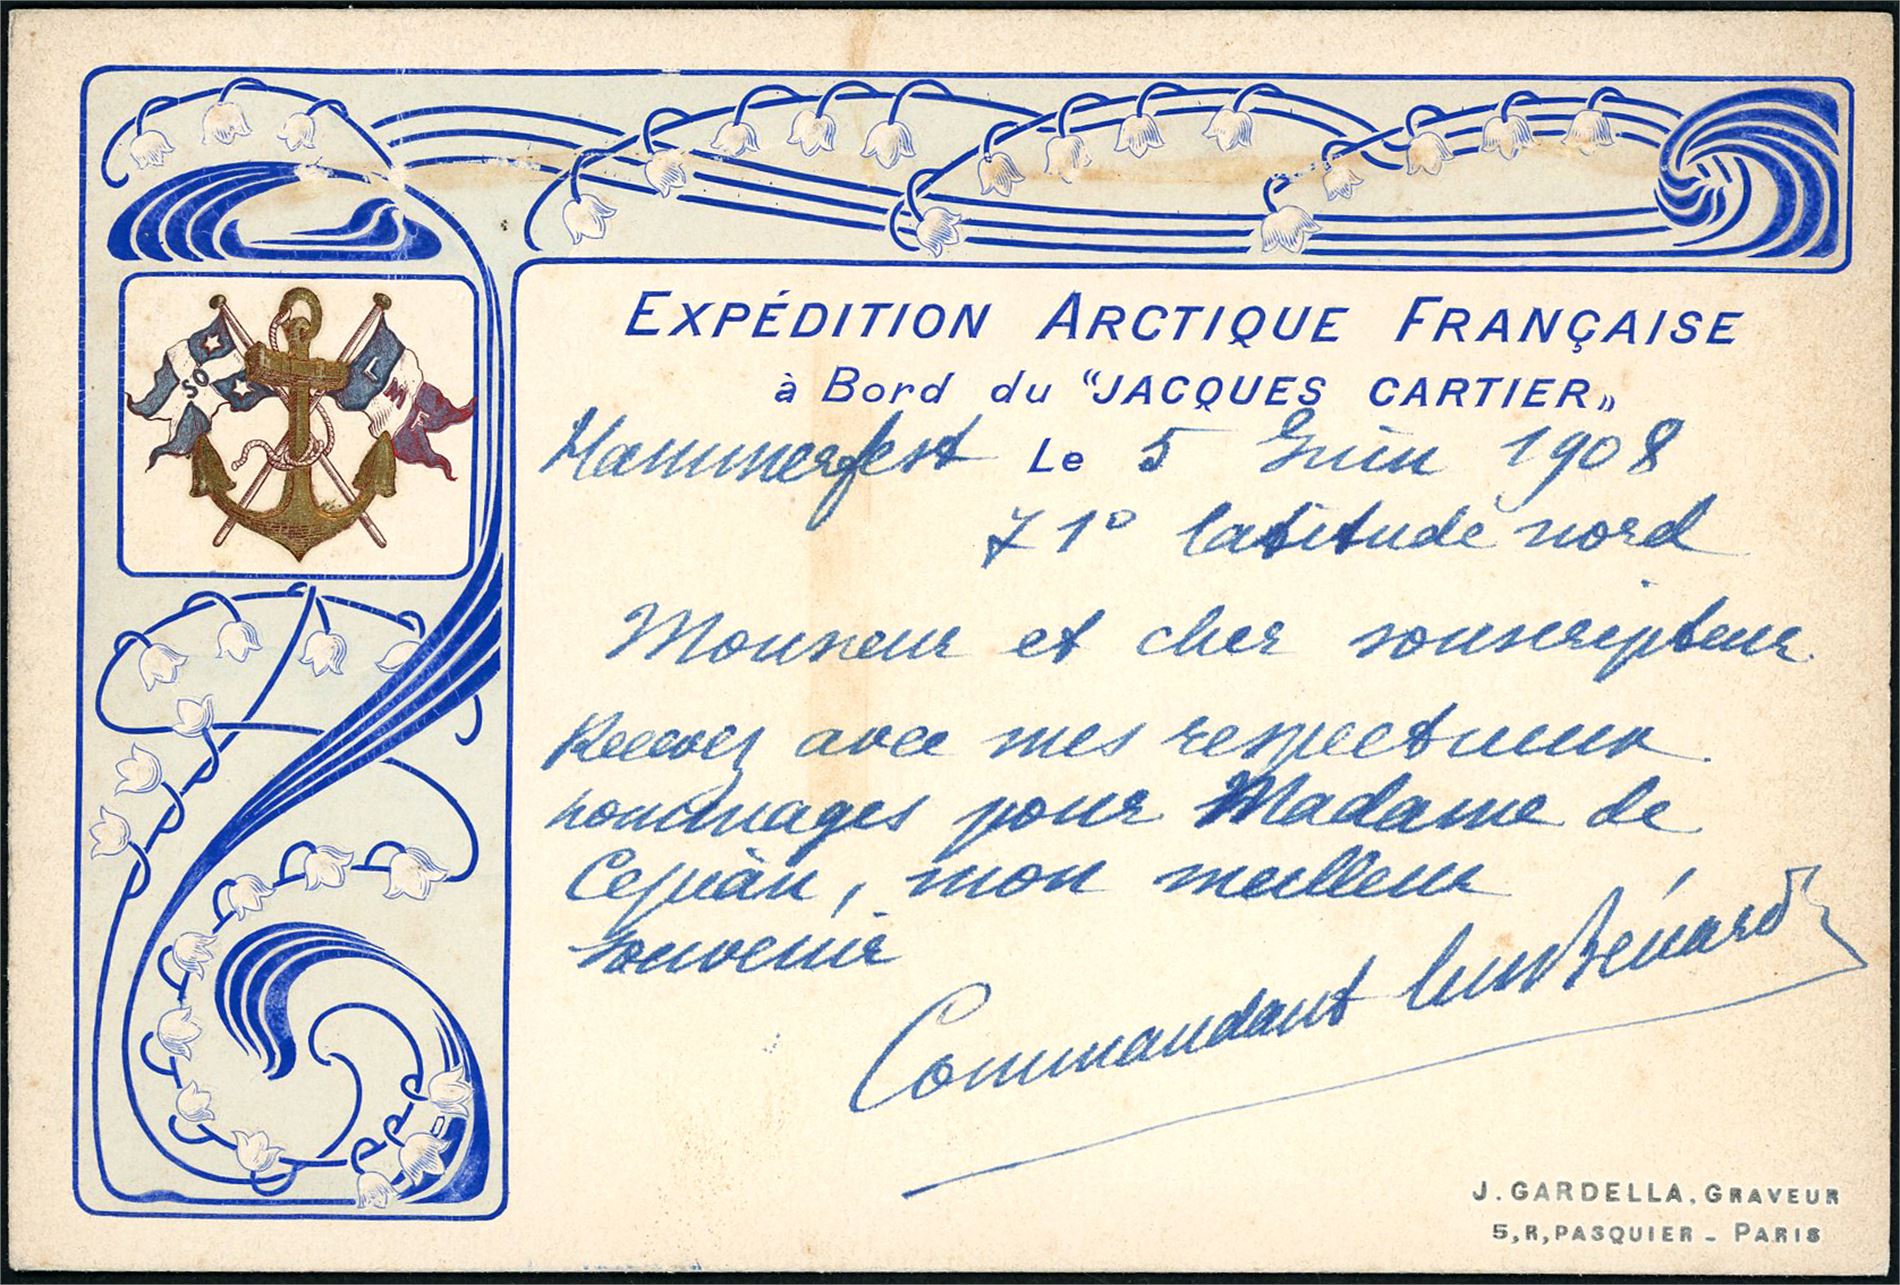 SO
LMF
EXPÉDITION ARCTIQUE FRANÇAISE
à Bord du "JACQUES CARTIER"
Hammerfest Le 5 Juin 1908
71° latitude nord
Monsieur et cher souscripteur.
Recevez avec mes respectueux
hommages pour Madame de
mon meilleur
souvenir
Commandant Bénard
J. GARDELLA, GRAVEUR
5, R, PASQUIER - PARIS